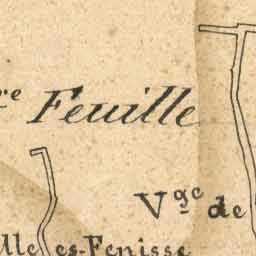 re Feuille
Vge de
lle es-Fenisse